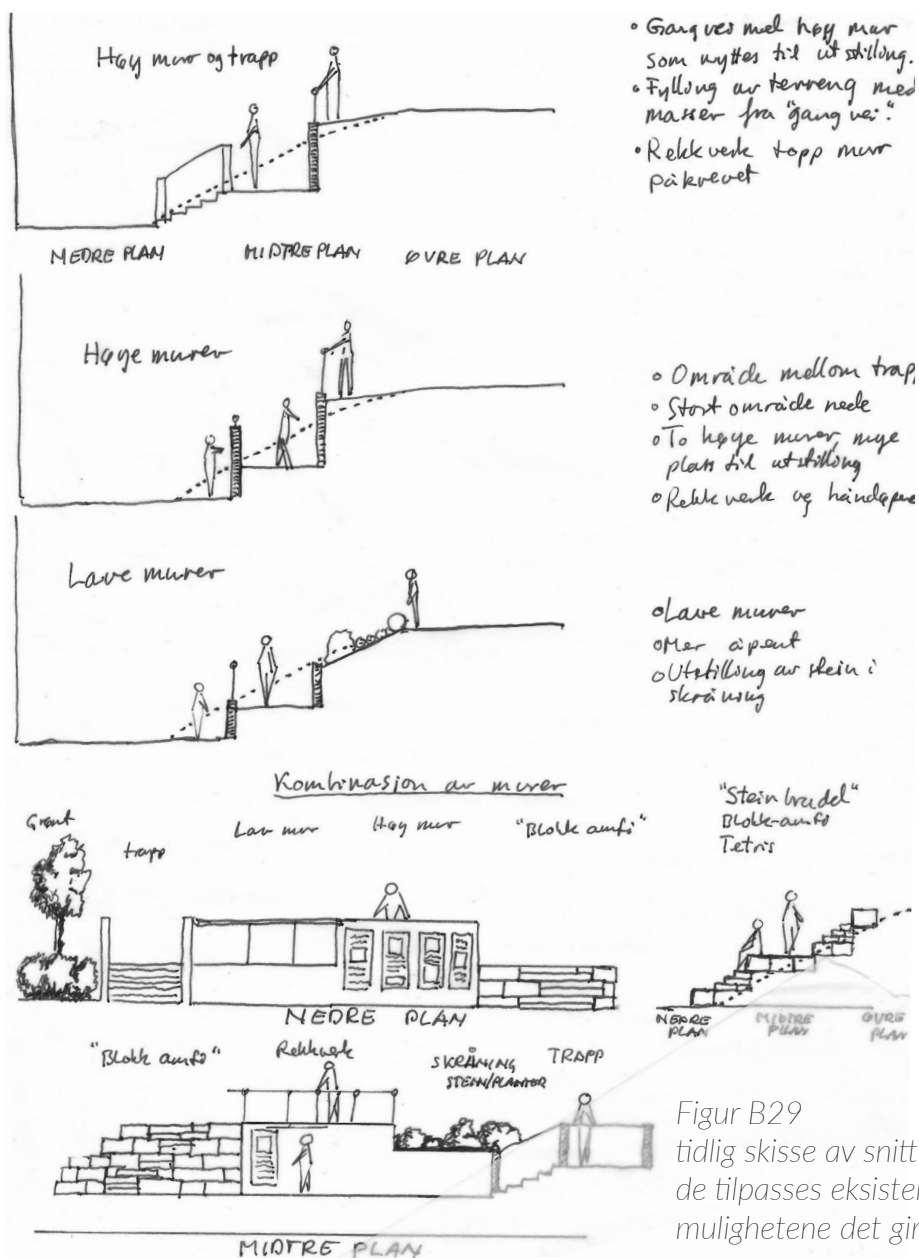 Høy mur og trapp
• Gangvei med høy mur
som nyttes til utstilling.
• Fylling av terreng med
masser fra "gangvei".
• Rekkverk topp mur
påkrevet
NEDRE PLAN MIDTRE PLAN ØVRE PLAN
Høye murer
• Område mellom trapp
• Stort område nede
• To høye murer, mye
plass til utstilling
• Rekkverk og håndløpe
Lave murer
• Lave murer
• Mer åpent
• Utstilling av stein i
skråning
Kombinasjon av murer
Grønt
trapp
Lav mur
Høy mur
"Blokk amfi"
"Steinbrudd"
Blokk-amfi
Tetris
NEDRE PLAN
NEDRE
PLAN
MIDTRE
PLAN
ØVRE
PLAN
"Blokk amfi"
Rekkverk
SKRÅNING
STEIN/PLANTER
TRAPP
MIDTRE PLAN
Figur B29
tidlig skisse av snitt
de tilpasses eksister
mulighetene det gir